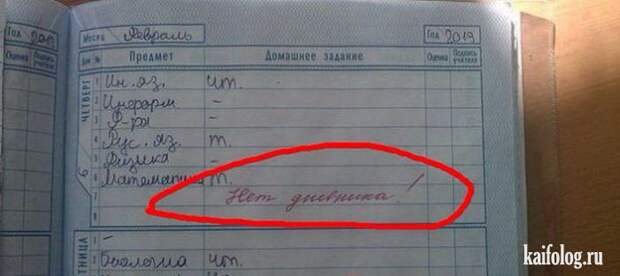 Год 2019
Месяц Февраль Год 2019
Оценка Подпись учителя
Дни № Предмет Домашнее задание Оценка Подпись учителя
ЧЕТВЕРГ 6
1 Ин. яз. чт.
2 Информ –
3 Ф-ра –
4 Рус. яз. т.
5 Физика –
6 Математика т.
7 Нет дневника!
8
ПЯТНИЦА
1 –
2 Биология чт.
kaifolog.ru